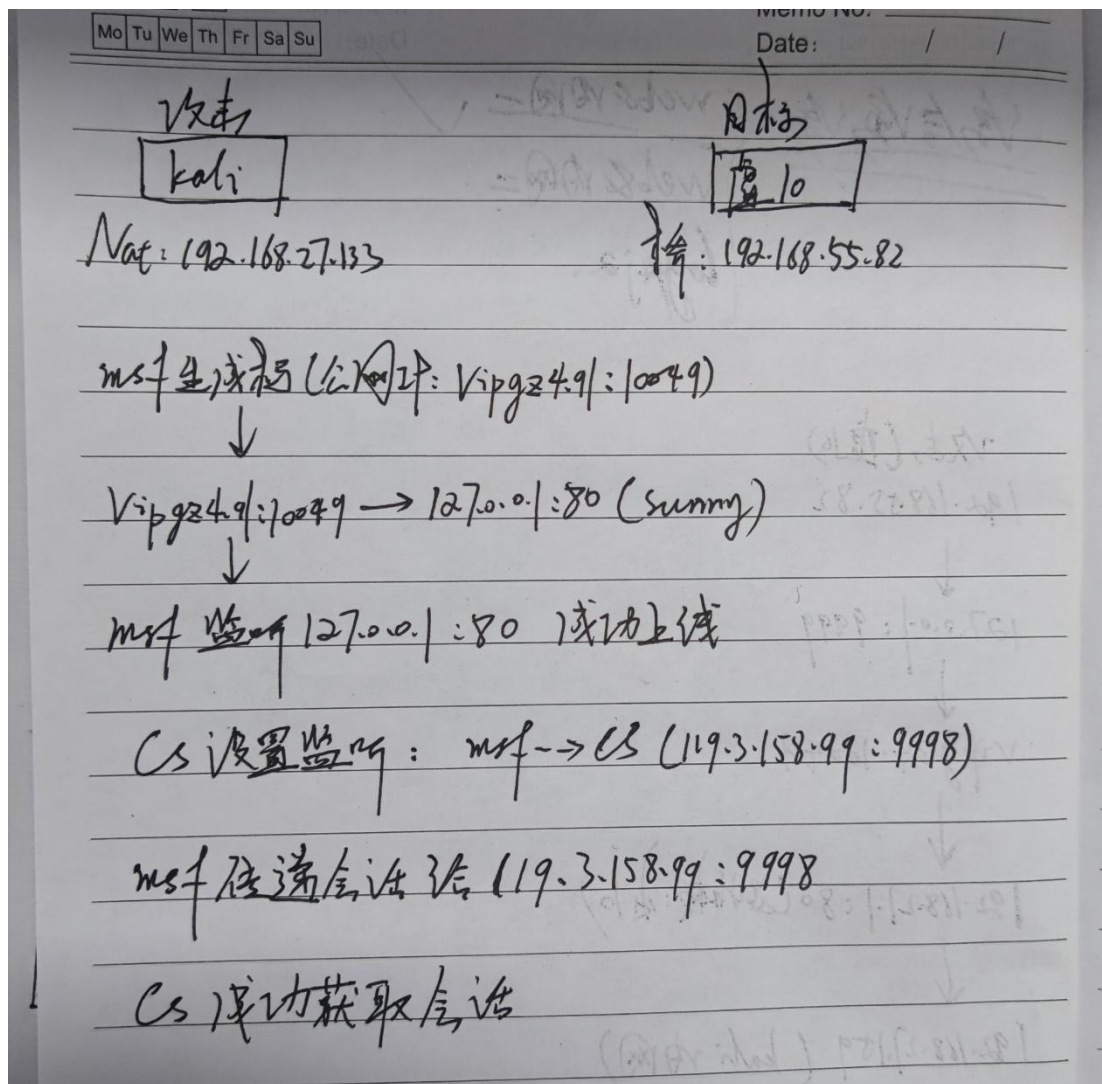 Memo No.
Mo Tu We Th Fr Sa Su
Date: / /
攻击 目标
kali 10
Nat: 192.168.27.133 桥: 192.168.55.82
msf 生成 (公网IP: Vipgz4.91:10049)
↓
Vipgz4.91:10049 → 127.0.0.1:80 (Sunny)
↓
msf 监听 127.0.0.1:80 成功上线
CS 设置监听: msf → CS (119.3.158.99:9998)
msf 传递会话给 119.3.158.99:9998
CS 成功获取会话